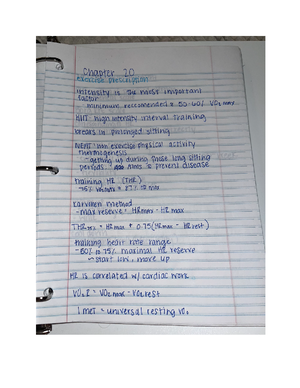 Chapter 20
exercise prescription
intensity is the most important
factor
- minimum reccomended is 50-60% VO2 max
HIIT: high intensity interval training
breaks in prolonged sitting
NEAT: non exercise physical activity
thermogenesis
- getting up during those long sitting
periods to prevent disease
training HR (THR)
Karvonen method
- max reserve = HR max - HR
THR = 0.75(HR max - HR rest)
training heart rate range
- 60% to 75% maximal HR reserve
- start low, move up
HR is correlated w/ cardiac work
VO2R = VO2 max - VO2 rest
1 met = universal resting VO2